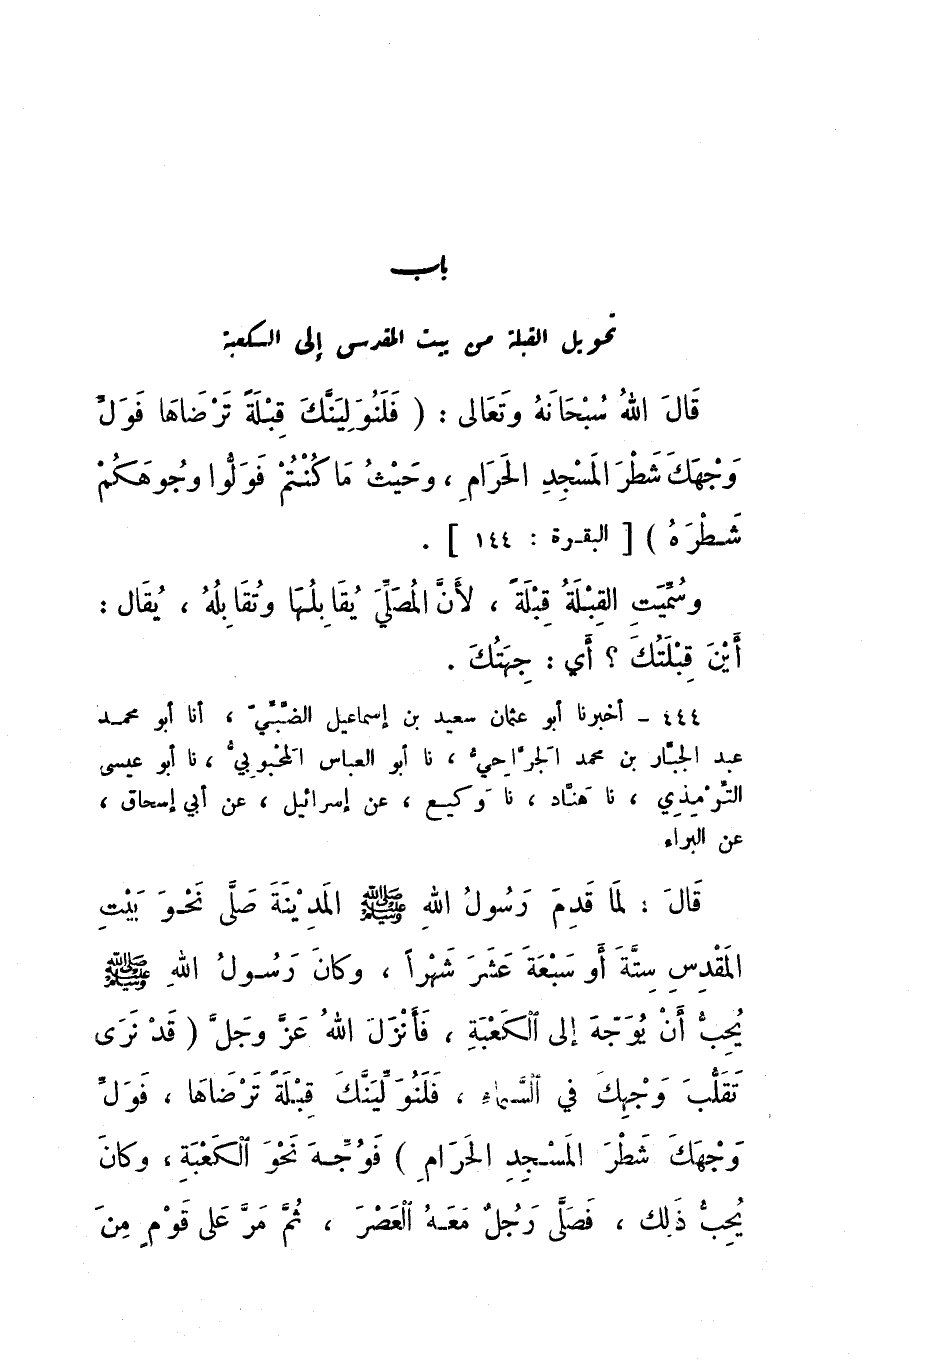 باب
تحويل القبلة من بيت المقدس إلى الكعبة
قَالَ اللهُ سُبْحَانَهُ وتَعَالى : ( فَلَنُوَلِيَنَّكَ قِبْلَةً تَرْضَاهَا فَوَلِّ
وَجْهَكَ شَطْرَ المَسْجِدِ الحَرَامِ ، وحَيْثُ مَا كُنْتُمْ فَوَلُّوا وجُوهَكُمْ
شَطْرَهُ ) [ البقرة : ١٤٤ ] .
وسُمِّيَتِ القِبْلَةُ قِبْلَةً ، لأَنَّ المُصَلِّيَ يُقَابِلُهَا وتُقَابِلُهُ ، يُقَال :
أَيْنَ قِبْلَتُكَ ؟ أَي : جِهَتُكَ .
٤٤٤ - أخبرنا أبو عثمان سعيد بن إسماعيل الضَّبِّيّ ، أنا أبو محمد
عبد الجبَّار بن محمد الجرَّاحِيُّ ، نا أبو العباس المحْبُوبيُّ ، نا أبو عيسى
التِّرْمِذي ، نا هَنَّاد ، نا وَكيع ، عن إسرائيل ، عن أبي إسحاق ،
عن البراء
قَالَ : لمَا قَدِمَ رَسُولُ اللهِ ﷺ المَدِيْنَةَ صَلَّى نَحْوَ بَيْتِ
المَقْدِسِ سِتَّةَ أَو سَبْعَةَ عَشَرَ شَهْراً ، وكانَ رَسُولُ اللهِ ﷺ
يُحِبُّ أَنْ يُوَجّهَ إلى ٱلكَعْبَةِ ، فَأَنْزَلَ اللهُ عَزَّ وجَلَّ ( قَدْ نَرَى
تَقَلُّبَ وَجْهِكَ في ٱلسَّماءِ ، فَلَنُوَلِّيَنَّكَ قِبْلَةً تَرْضَاهَا ، فَوَلِّ
وَجْهَكَ شَطْرَ المَسْجِدِ الحَرَامِ ) فَوُجِّهَ نَحْوَ ٱلكَعْبَةِ ، وكانَ
يُحِبُّ ذَلِك ، فَصَلَّى رَجُلٌ مَعَهُ ٱلعَصْرَ ، ثُمَّ مَرَّ عَلى قَوْمٍ مِنَ